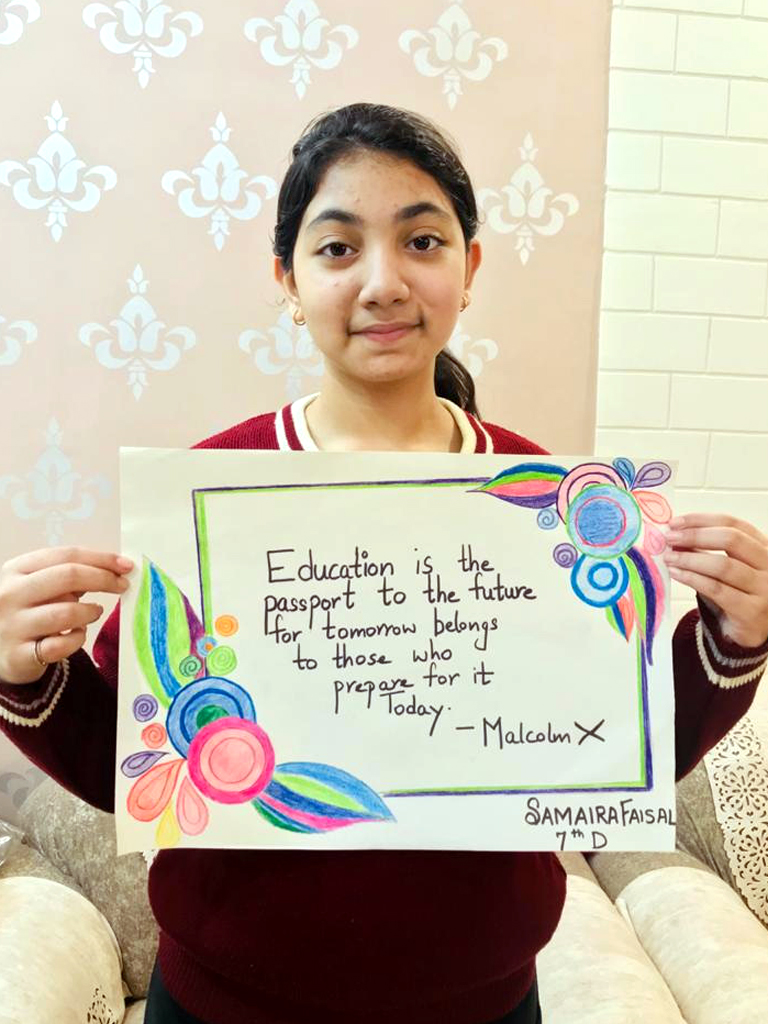 Education is the
passport to the future
for tomorrow belongs
to those who
prepare for it
Today.
- Malcolm X
SAMAIRA FAISAL
7th D